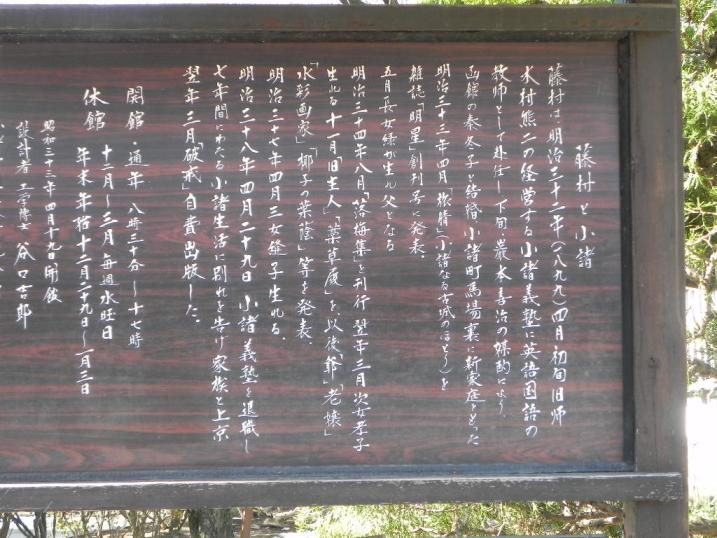 藤村と小諸
藤村は、明治三十二年(一八九九)四月初旬旧師
木村熊二の経営する小諸義塾に英語国語の
教師として赴任し下旬、巌本善治の媒酌により
函館の秦冬子と結婚、小諸町馬場裏に新家庭をもった
明治三十三年四月「旅情」(小諸なる古城のほとり)を
雑誌「明星」創刊号に発表、
五月長女緑が生れ父となる
明治三十四年八月「落梅集」を刊行 翌年三月次女孝子
生れる 十一月「旧主人」「藁草履」を、以後、「爺」「老嬢」
「水彩画家」「椰子の葉蔭」等を発表、
明治三十七年四月三女縫子生れる、
明治三十八年四月二十九日 小諸義塾を退職し
七年間にわたる小諸生活に別れを告げ家族と上京
翌年三月「破戒」自費出版した、
開館・通年 八時三十分〜十七時
十二月〜三月 毎週水旺日
休館 年末年始十二月二十九日〜一月三日
昭和三十三年四月十九日開館
設計者 工学博士 谷口吉郎